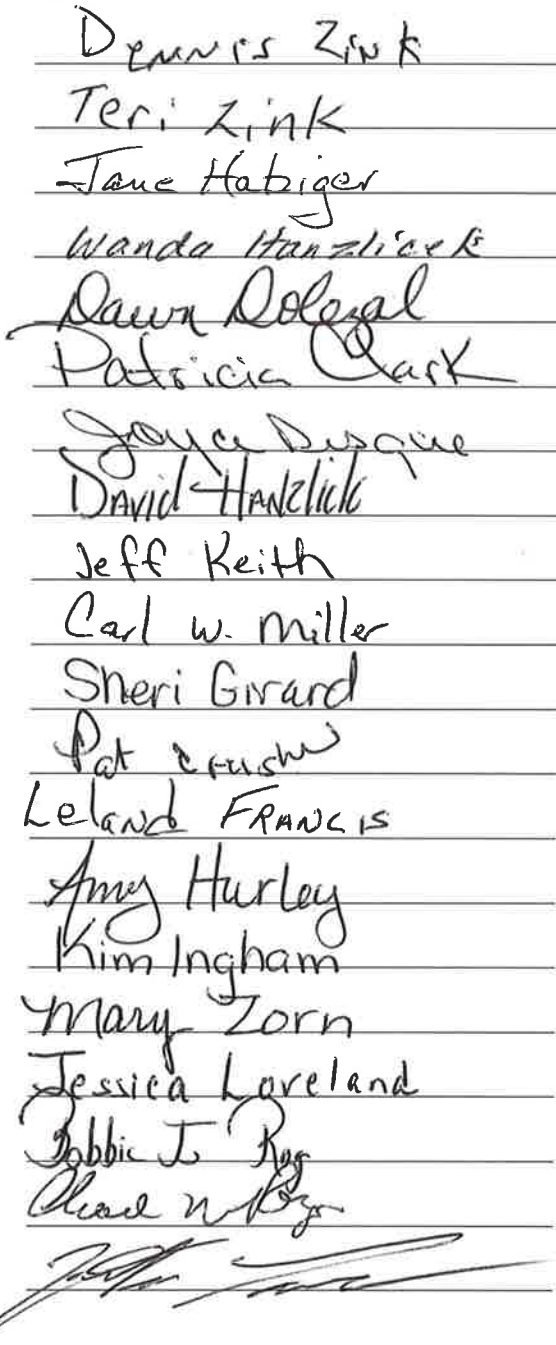 Dennis Zink
Teri Zink
Jane Habiger
Wanda Hanzlicek
Dawn Dolezal
Patricia Clark
Joyce Disque
David Hanzlick
Jeff Keith
Carl W. Miller
Sheri Girard
Pat
Leland Francis
Amy Hurley
Kim Ingham
Mary Zorn
Jessica Loveland
Bobbie J.